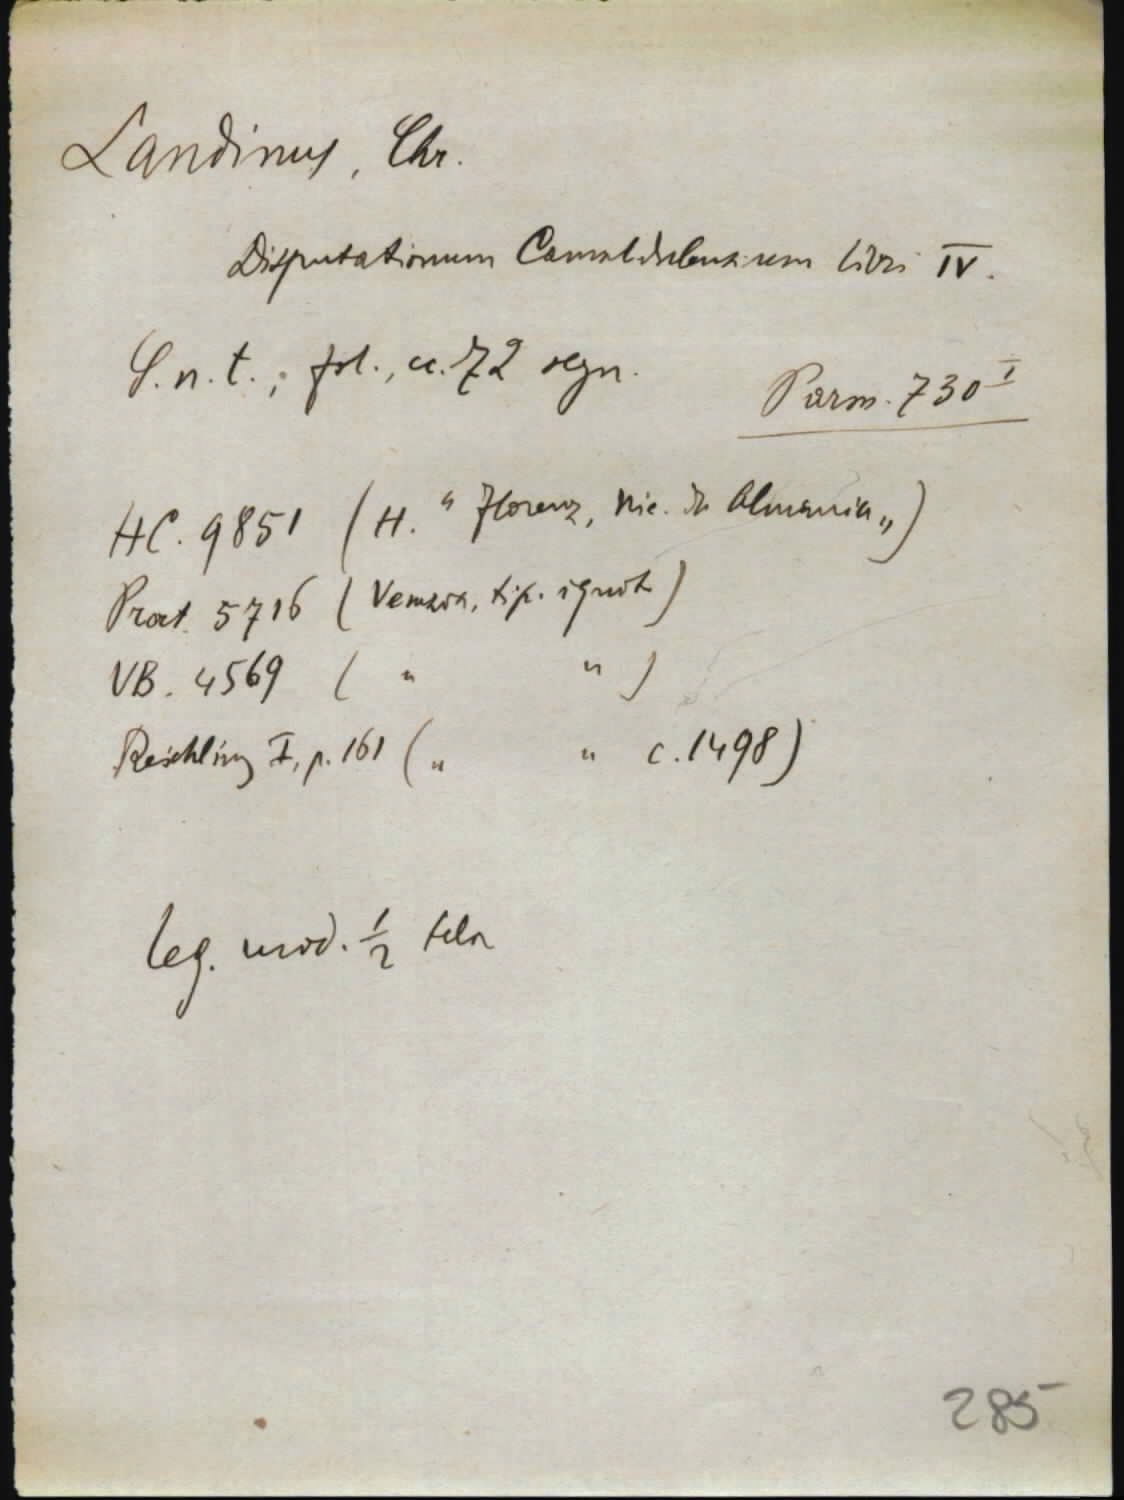 Landinus, Chr.
Disputationum Camaldulensium libri IV.
S. n. t.; fol., cc. 72 segn.
Parm. 730 I
HC. 9851 (H. " Florenz, Nic. de Almania„)
Proct. 5716 (Venezia, tip. ignoto)
VB. 4569 ( " " )
Reichling I, p. 161 ( " " c. 1498)
leg. mod. ½ tela
285